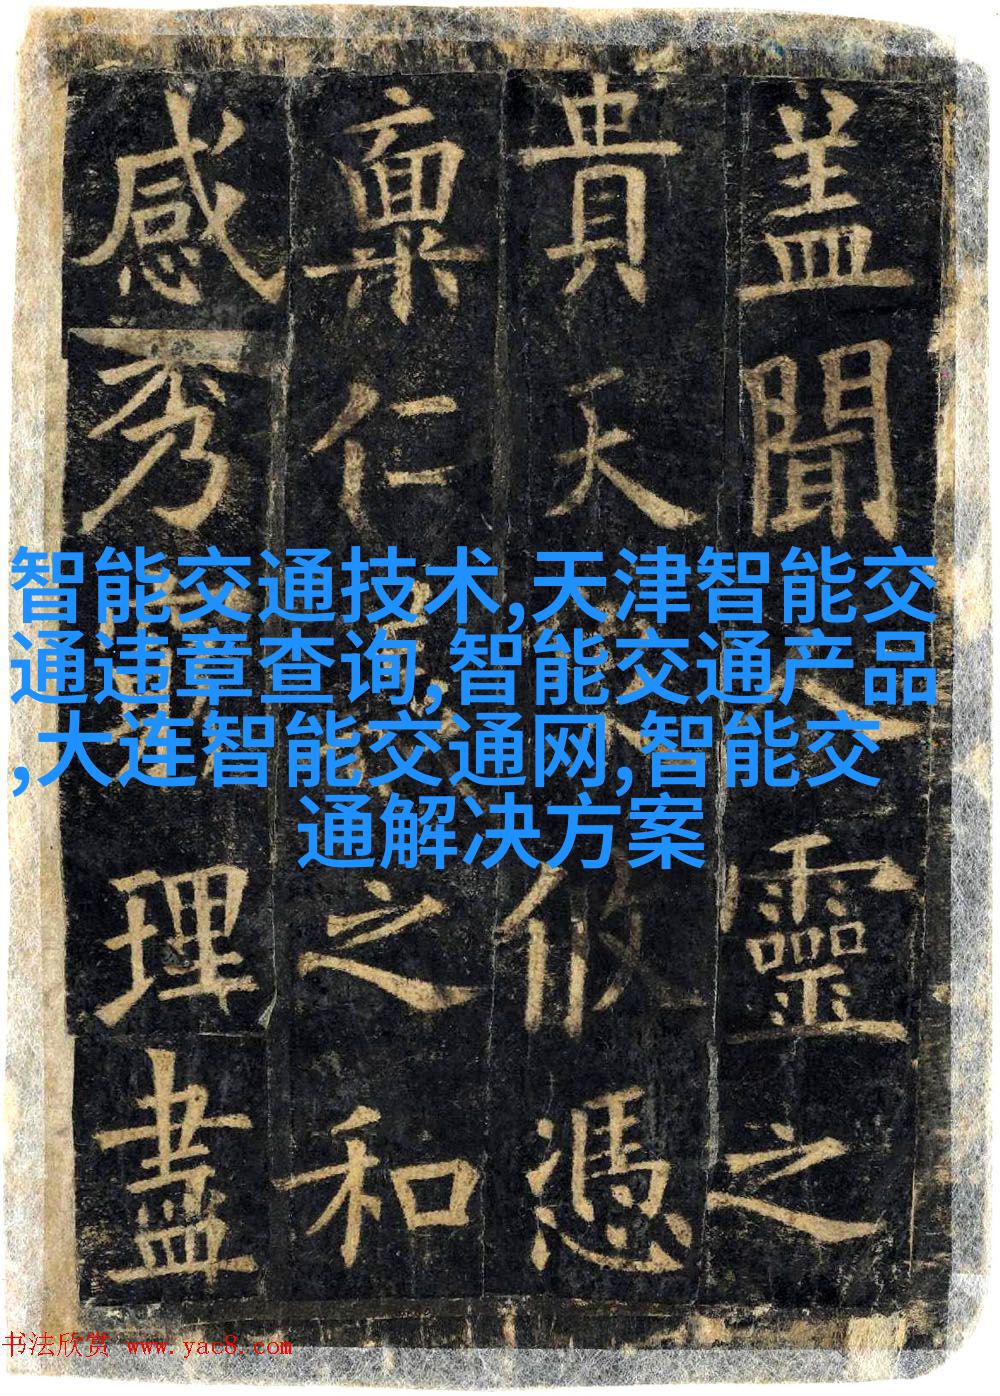 盖聞人靈之
貴天攸憑
稟仁之和
感秀理盡
智能交通技术,天津智能交
通违章查询,智能交通产品
,大连智能交通网,智能交
通解决方案
书法欣赏 www.yac8.com